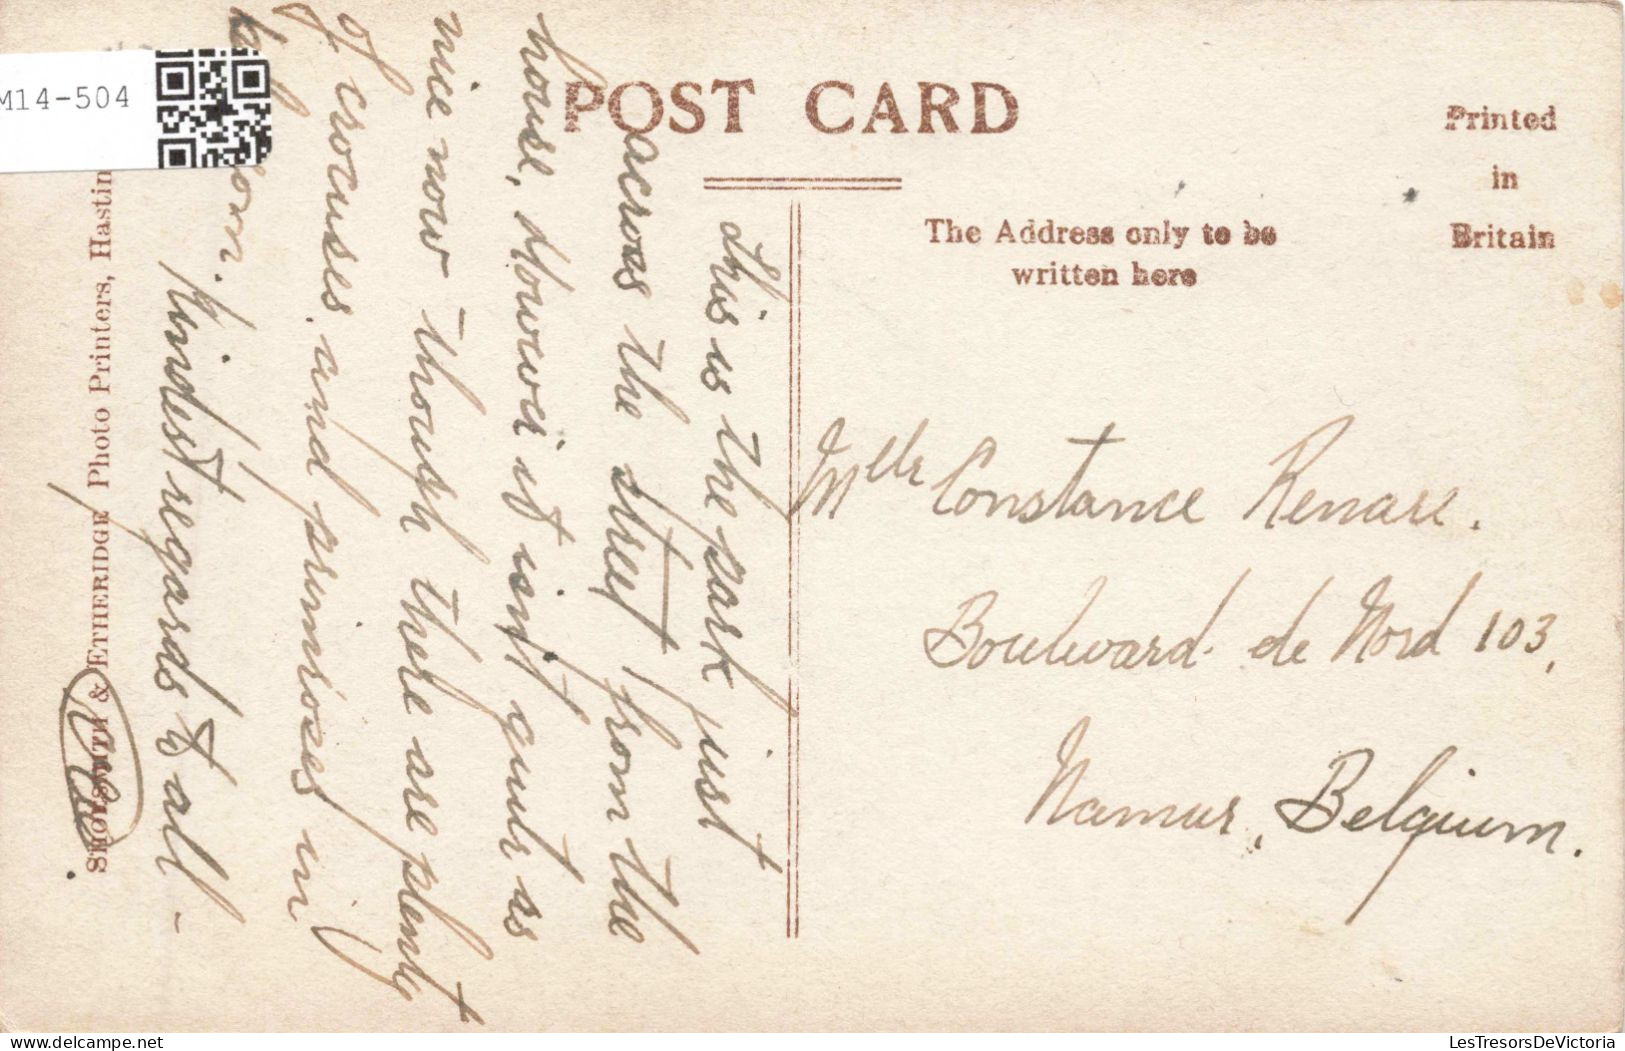 M14-504
POST CARD
Printed
in
Britain
The Address only to be
written here
This is the park just
across the street from the
house. However it isn't quite as
nice now though there are plenty
of crocuses and primroses in
Kindest regards to all -
Mlle Constance Renare.
Boulevard de Nord 103,
Namur, Belgium.
SHOESMITH & ETHERIDGE Photo Printers, Hastin
LesTresorsDeVictoria
www.delcampe.net